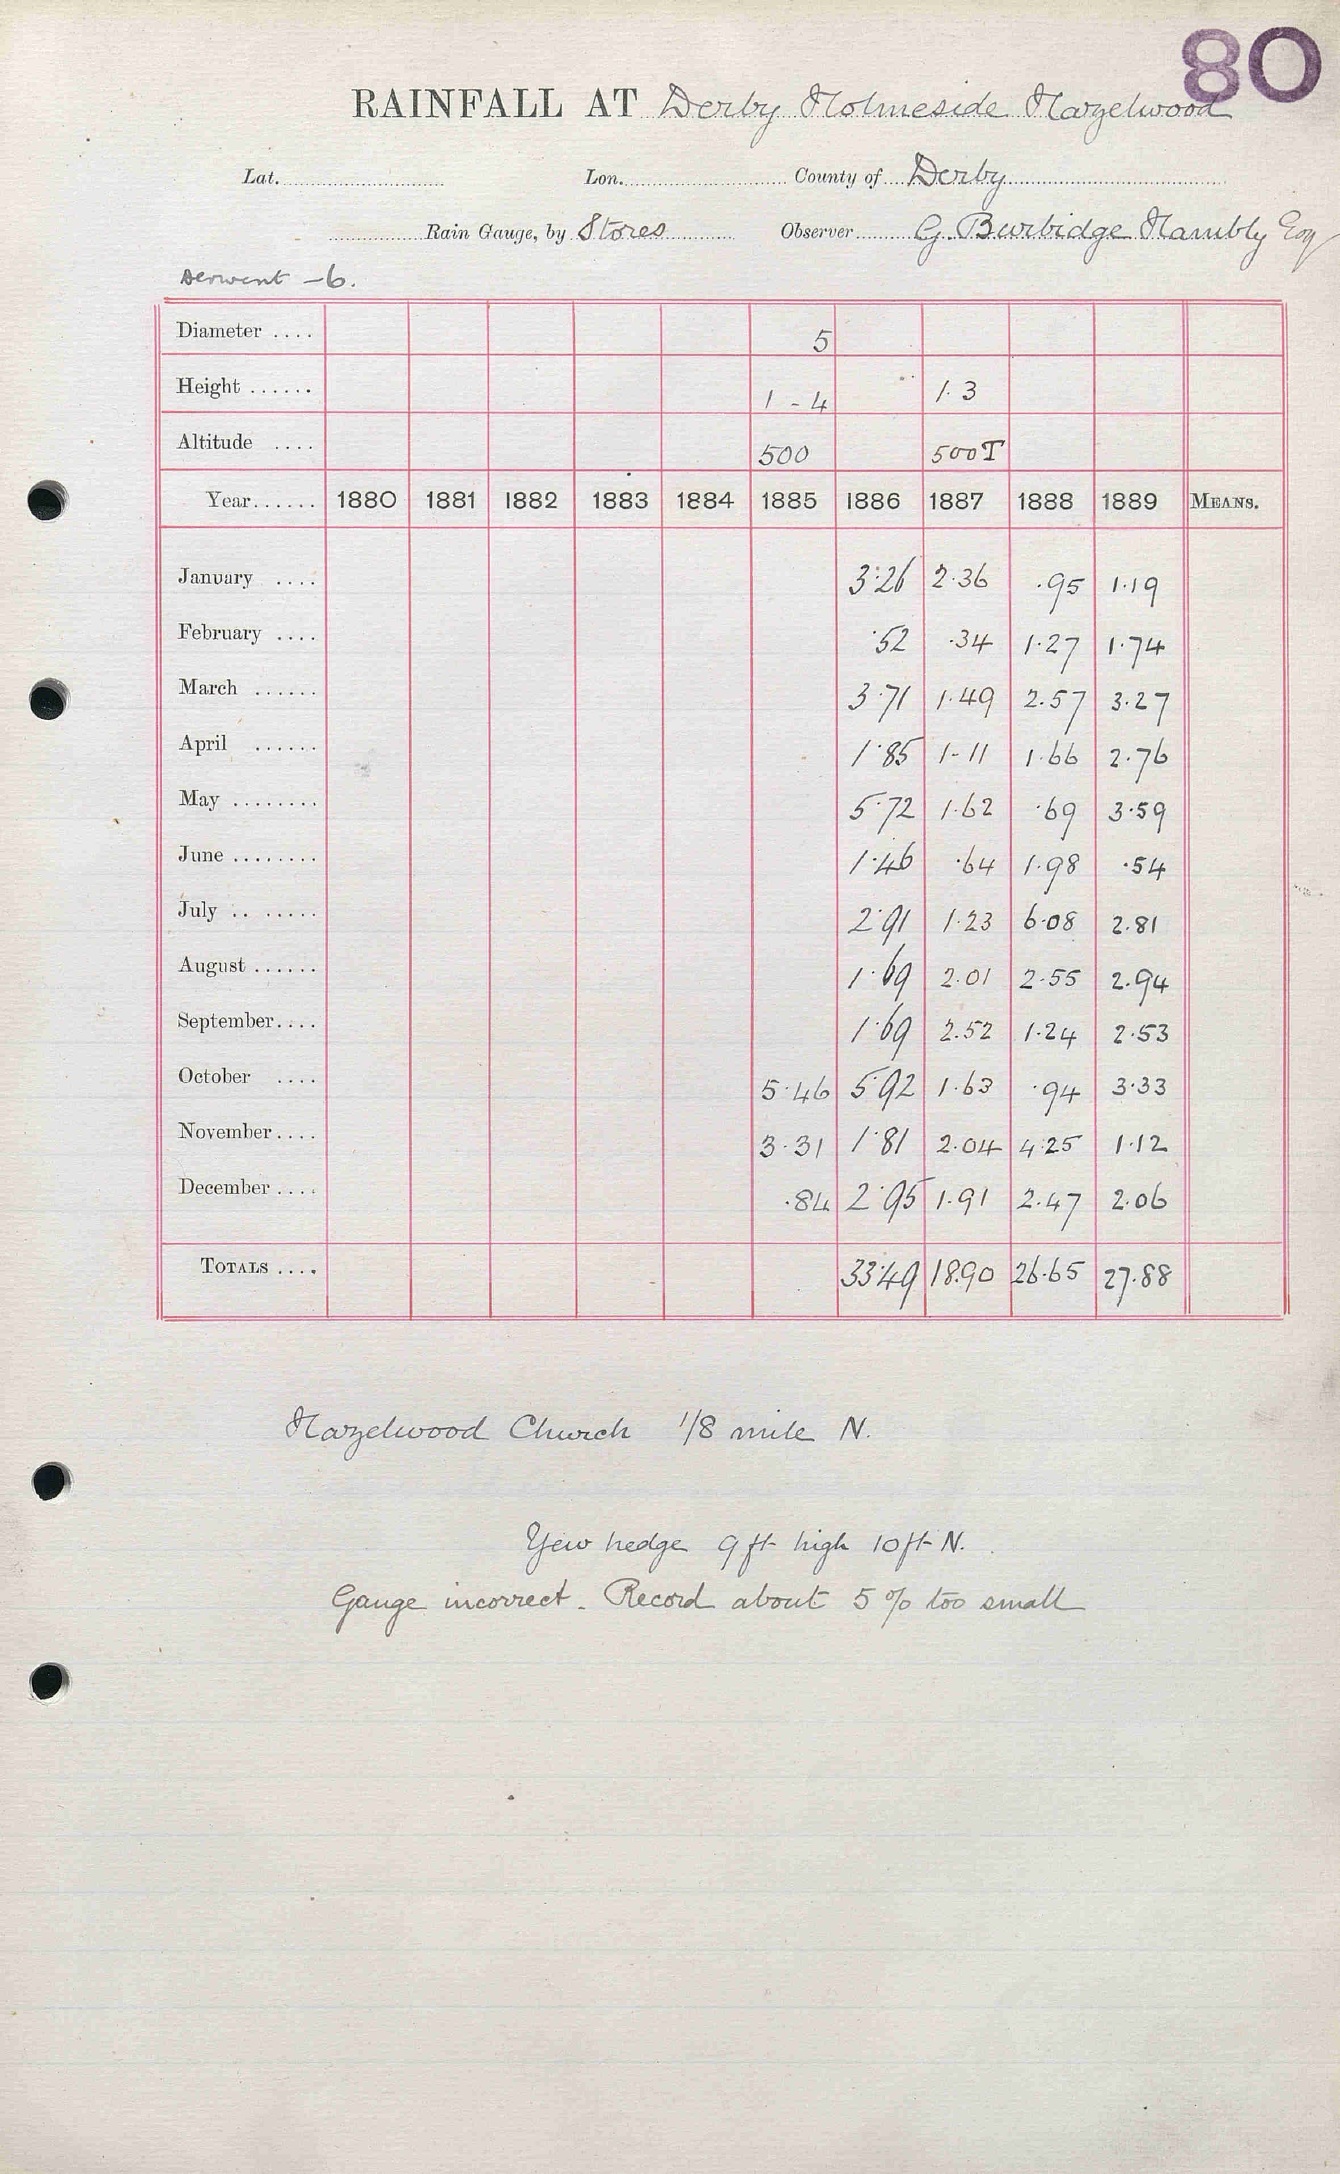 80
RAINFALL AT Derby Holmeside Hazelwood
Lat. Lon. County of Derby
Rain Gauge, by Stores Observer G. Burbidge Hambly Esq
Derwent - 6.
Diameter .... 5
Height ...... 1 - 4 1.3
Altitude .... 500 500T
Year...... 1880 1881 1882 1883 1884 1885 1886 1887 1888 1889 MEANS.
January .... 3.26 2.36 .95 1.19
February .... .52 .34 1.27 1.74
March ...... 3.71 1.49 2.57 3.27
April ...... 1.85 1-11 1.66 2.76
May ........ 5.72 1.62 .69 3.59
June ........ 1.46 .64 1.98 .54
July .. ..... 2.91 1.23 6.08 2.81
August ...... 1.69 2.01 2.55 2.94
September.... 1.69 2.52 1.24 2.53
October .... 5.46 5.92 1.63 .94 3.33
November.... 3.31 1.81 2.04 4.25 1.12
December .... .84 2.95 1.91 2.47 2.06
TOTALS .... 33.49 18.90 26.65 27.88
Hazelwood Church 1/8 mile N.
Yew hedge 9 ft high 10 ft N.
Gauge incorrect. Record about 5 % too small